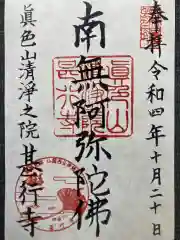 奉拝 令和四年十月二十日
南無阿弥陀佛
眞色山清淨之院
甚行寺